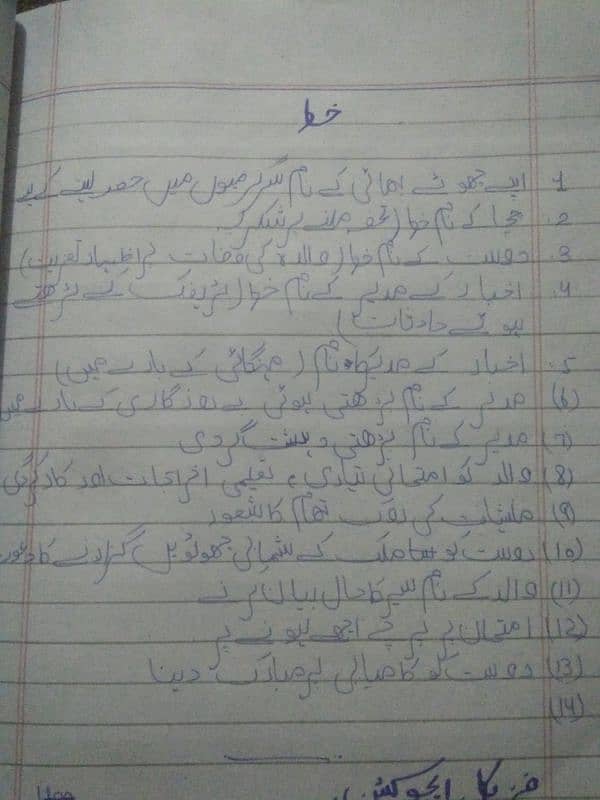 خط
1 اپنے چھوٹے بھائی کے نام سرگرمیوں میں حصہ لینے کے لیے
2. چچا کے نام خط (تحفہ ملنے پر شکریہ
3. دوست کے نام خط (والدہ کی وفات پر اظہار تعزیت)
4. اخبار کے مدیر کے نام خط (ٹریفک کے بڑھتے
ہوئے حادثات)
5. اخبار کے مدیر کے نام (مہنگائی کے بارے میں)
(6) مدیر کے نام بڑھتی ہوئی بے روزگاری کے بارے میں
(7) مدیر کے نام بڑھتی دہشت گردی
(8) والد کو امتحانی تیاری، تعلیمی اخراجات اور کارکردگی
(9) منشیات کی روک تھام کا شعور
(10) دوست کو ملک کے شمالی گزارنے کا
(11) والد کے نام سیر کا حال بیان کرنے
(12) امتحان پر پرچے اچھے ہونے پر
(13) دوست کو کامیابی پر مبارک دینا
(14)
فزیکل ایجوکیشن